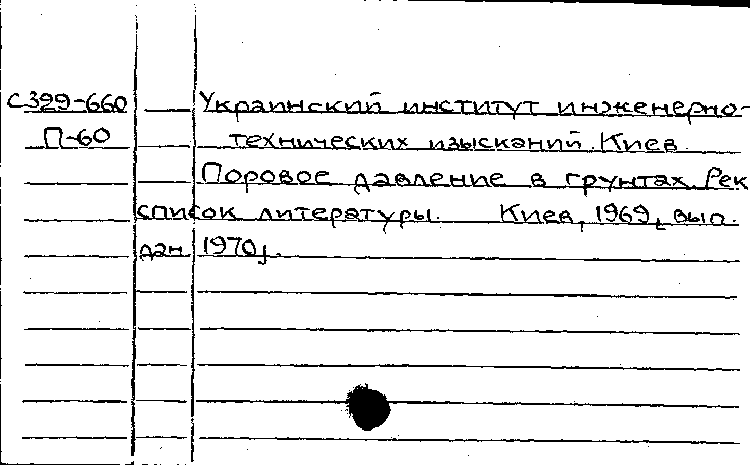 С329-660 Украинский институт инженерно-
П-60 технических изысканий. Киев.
Поровое давление в грунтах. Рек
список литературы. Киев, 1969,
дан 1970].